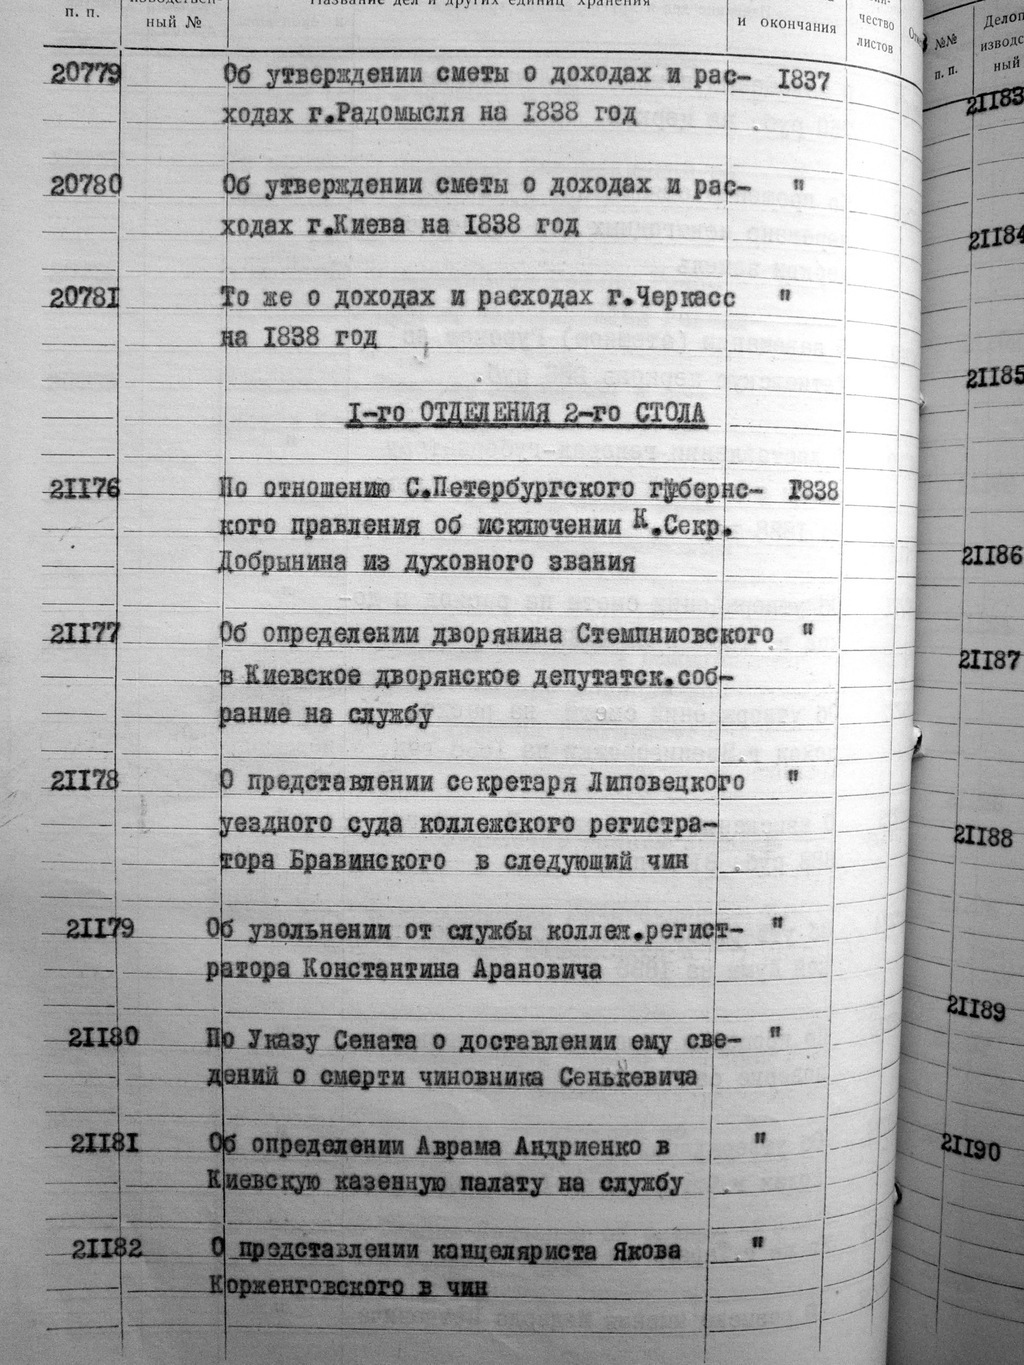 п. п.
ный №
Название дел и других единиц хранения
и окончания
чество
листов
20779 Об утверждении сметы о доходах и рас- 1837
ходах г.Радомысля на 1838 год
20780 Об утверждении сметы о доходах и рас- "
ходах г.Киева на 1838 год
20781 То же о доходах и расходах г.Черкасс "
на 1838 год
I-го ОТДЕЛЕНИЯ 2-го СТОЛА
21176 По отношению С.Петербургского губернс- 1838
кого правления об исключении К.Секр.
Добрынина из духовного звания
21177 Об определении дворянина Стемпниовского "
в Киевское дворянское депутатск.соб-
рание на службу
21178 О представлении секретаря Липовецкого "
уездного суда коллежского регистра-
тора Бравинского в следующий чин
21179 Об увольнении от службы коллеж.регист- "
ратора Константина Арановича
21180 По Указу Сената о доставлении ему све- "
дений о смерти чиновника Сенькевича
21181 Об определении Аврама Андриенко в "
Киевскую казенную палату на службу
21182 О представлении канцеляриста Якова "
Корженговского в чин
№№
п. п.
Делоп
изводс
ный
21183
21184
21185
21186
21187
21188
21189
21190